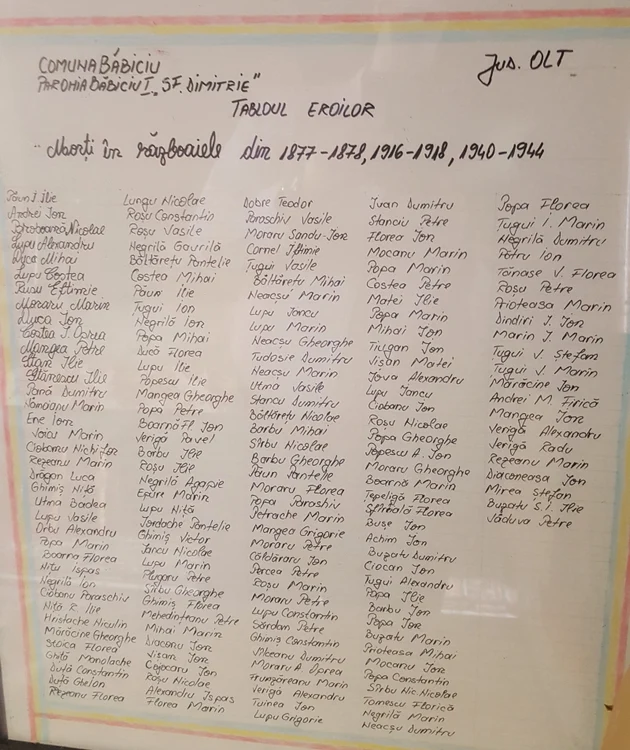 COMUNA BĂBICIU
PAROHIA BĂBICIU I „SF. DIMITRIE"
JUD. OLT
TABLOUL EROILOR
Morți în războaiele din 1877-1878, 1916-1918, 1940-1944
Păun I. Ilie
Andrei Ion
Nicolae
Lupu Alexandru
Duca Mihai
Lupu Costea
Rusu Eftimie
Moraru Marin
Duca Ion
Costea I. Oprea
Mangea Petre
Stan Ilie
Stănescu Ilie
Pană Dumitru
Marin
Ene Ion
Voicu Marin
Ciobanu Nichifor
Rezeanu Marin
Dragon Luca
Ghimiș Niță
Utma Badea
Lupu Vasile
Orbu Alexandru
Popa Marin
Boarna Florea
Nițu Ispas
Negrilă Ion
Ciobanu Paraschiv
Niță R. Ilie
Hristache Niculin
Mărăcine Gheorghe
Stoica Florea
Ghiță Manolache
Duță Constantin
Duță Ghelon
Rezeanu Florea
Lungu Nicolae
Roșu Constantin
Roșu Vasile
Negrilă Gavrilă
Băltărețu Pantelie
Costea Mihai
Păun Ilie
Țugui Ion
Negrilă Ion
Popa Mihai
Ducă Florea
Lupu Ilie
Popescu Ilie
Mangea Gheorghe
Popa Petre
Boarnă Fl. Ion
Verigă Pavel
Barbu Ilie
Roșu Ilie
Negrilă Agapie
Epure Marin
Lupu Niță
Iordache Pantelie
Ghimiș Victor
Iancu Nicolae
Lupu Marin
Plugaru Petre
Sîrbu Gheorghe
Ghimiș Florea
Mehedințeanu Petre
Mihai Marin
Diaconu Ion
Vișan Ion
Cojocanu Ion
Roșu Nicolae
Alexandru Ispas
Florea Marin
Dobre Teodor
Paraschiv Vasile
Moraru Sandu-Ion
Cornel Eftimie
Țugui Vasile
Băltărețu Mihai
Neacșu Marin
Lupu Iancu
Lupu Marin
Neacșu Gheorghe
Tudosie Dumitru
Neacșu Marin
Utmă Vasile
Stancu Dumitru
Băltărețu Nicolae
Barbu Mihai
Sîrbu Nicolae
Barbu Gheorghe
Păun Pantelie
Moraru Florea
Popa Paraschiv
Petrache Marin
Mangea Grigorie
Moraru Petre
Căldăraru Ion
Percea Petre
Roșu Marin
Moraru Petre
Lupu Constantin
Sărdan Petre
Ghimiș Constantin
Vîlceanu Dumitru
Moraru A. Oprea
Frunzăreanu Marin
Verigă Alexandru
Tuinea Ion
Lupu Grigorie
Ivan Dumitru
Stanciu Petre
Florea Ion
Mocanu Marin
Popa Marin
Costea Petre
Matei Ilie
Popa Marin
Mihai Ion
Tiugan Ion
Vișan Matei
Iova Alexandru
Lupu Iancu
Ciobanu Ion
Roșu Nicolae
Popa Gheorghe
Popescu A. Ion
Moraru Gheorghe
Boarnă Marin
Țepeligă Florea
Sfîrnală Florea
Bușe Ion
Achim Ion
Buzatu Dumitru
Ciocan Ion
Țugui Alexandru
Popa Ilie
Barbu Ion
Popa Ion
Buzatu Marin
Prioteasa Mihai
Mocanu Ion
Popa Constantin
Sîrbu Nic. Nicolae
Tomescu Florică
Negrilă Marin
Neacșu Dumitru
Popa Florea
Țugui I. Marin
Negrilă Dumitru
Pătru Ion
Tănase V. Florea
Roșu Petre
Prioteasa Marin
Dindiri I. Ion
Marin I. Marin
Țugui V. Ștefan
Țugui V. Marin
Mărăcine Ion
Andrei M. Firică
Mangea Ion
Verigă Alexandru
Verigă Radu
Rezeanu Marin
Diaconeasa Ion
Mirea Ștefan
Buzatu S. I. Ilie
Văduva Petre